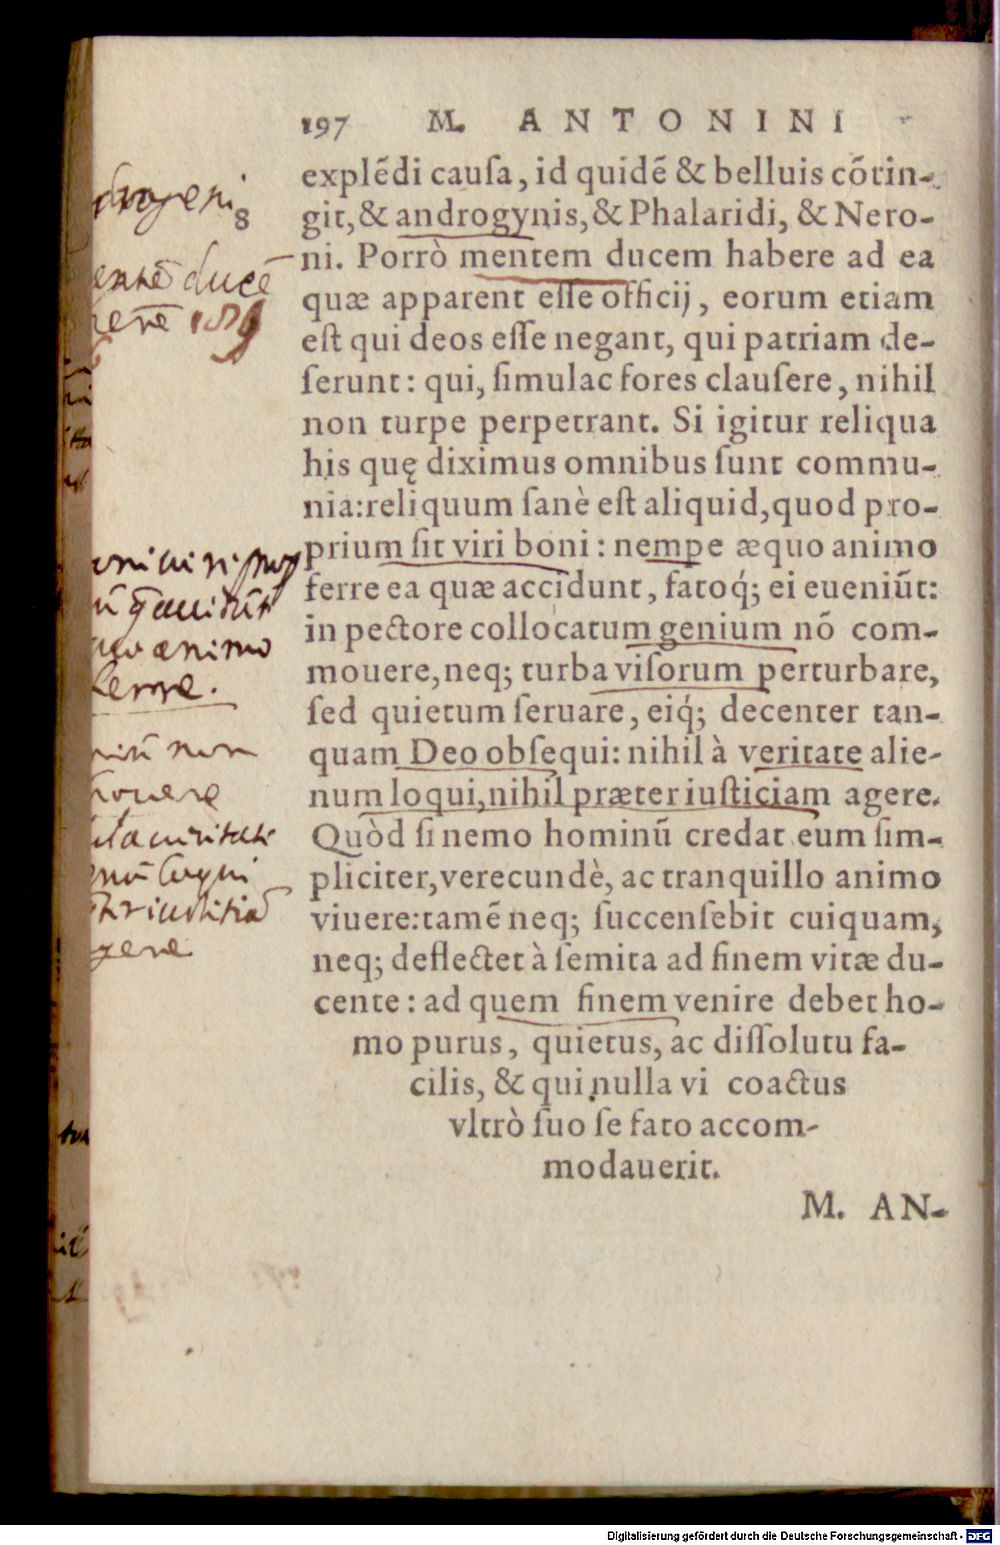 197 M. ANTONINI
explēdi cauſa, id quidē & belluis cōtin-
git, & androgynis, & Phalaridi, & Nero-
ni. Porrò mentem ducem habere ad ea
quæ apparent eſſe officij, eorum etiam
eſt qui deos eſſe negant, qui patriam de-
ſerunt: qui, ſimulac fores clauſere, nihil
non turpe perpetrant. Si igitur reliqua
his quę diximus omnibus ſunt commu-
nia: reliquum ſanè eſt aliquid, quod pro-
prium ſit viri boni: nempe æquo animo
ferre ea quæ accidunt, fatoq́; ei eueniūt:
in pectore collocatum genium nō com-
mouere, neq; turba viſorum perturbare,
ſed quietum ſeruare, eiq́; decenter tan-
quam Deo obſequi: nihil à veritate alie-
num loqui, nihil præter iuſticiam agere.
Quòd ſi nemo hominū credat eum ſim-
pliciter, verecundè, ac tranquillo animo
viuere: tamē neq; ſuccenſebit cuiquam,
neq; deflectet à ſemita ad finem vitæ du-
cente: ad quem finem venire debet ho-
mo purus, quietus, ac diſſolutu fa-
cilis, & qui nulla vi coactus
vltrò ſuo ſe fato accom-
modauerit.
M. AN-
8
ducē
animo
ferre.
non
Digitalisierung gefördert durch die Deutsche Forschungsgemeinschaft - DFG